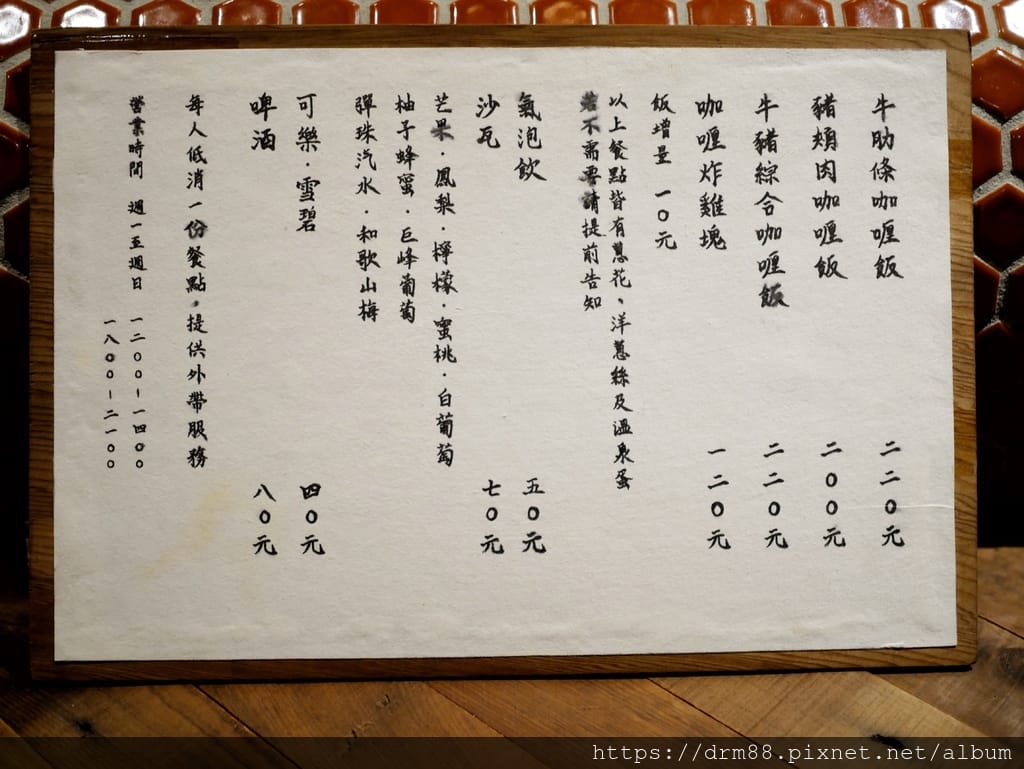 牛肋條咖喱飯 二二0元
豬頰肉咖喱飯 二00元
牛豬綜合咖喱飯 二二0元
咖喱炸雞塊 一二0元
飯增量 一0元
以上餐點皆有蔥花、洋蔥絲及溫泉蛋
若不需要請提前告知
氣泡飲 五0元
沙瓦 七0元
芒果·鳳梨·檸檬·蜜桃·白葡萄
柚子蜂蜜·巨峰葡萄
彈珠汽水·和歌山梅
可樂·雪碧 四0元
啤酒 八0元
每人低消一份餐點，提供外帶服務
營業時間 週一至週日 一二00-一四00
一八00-二一00
https://drm88.pixnet.net/album